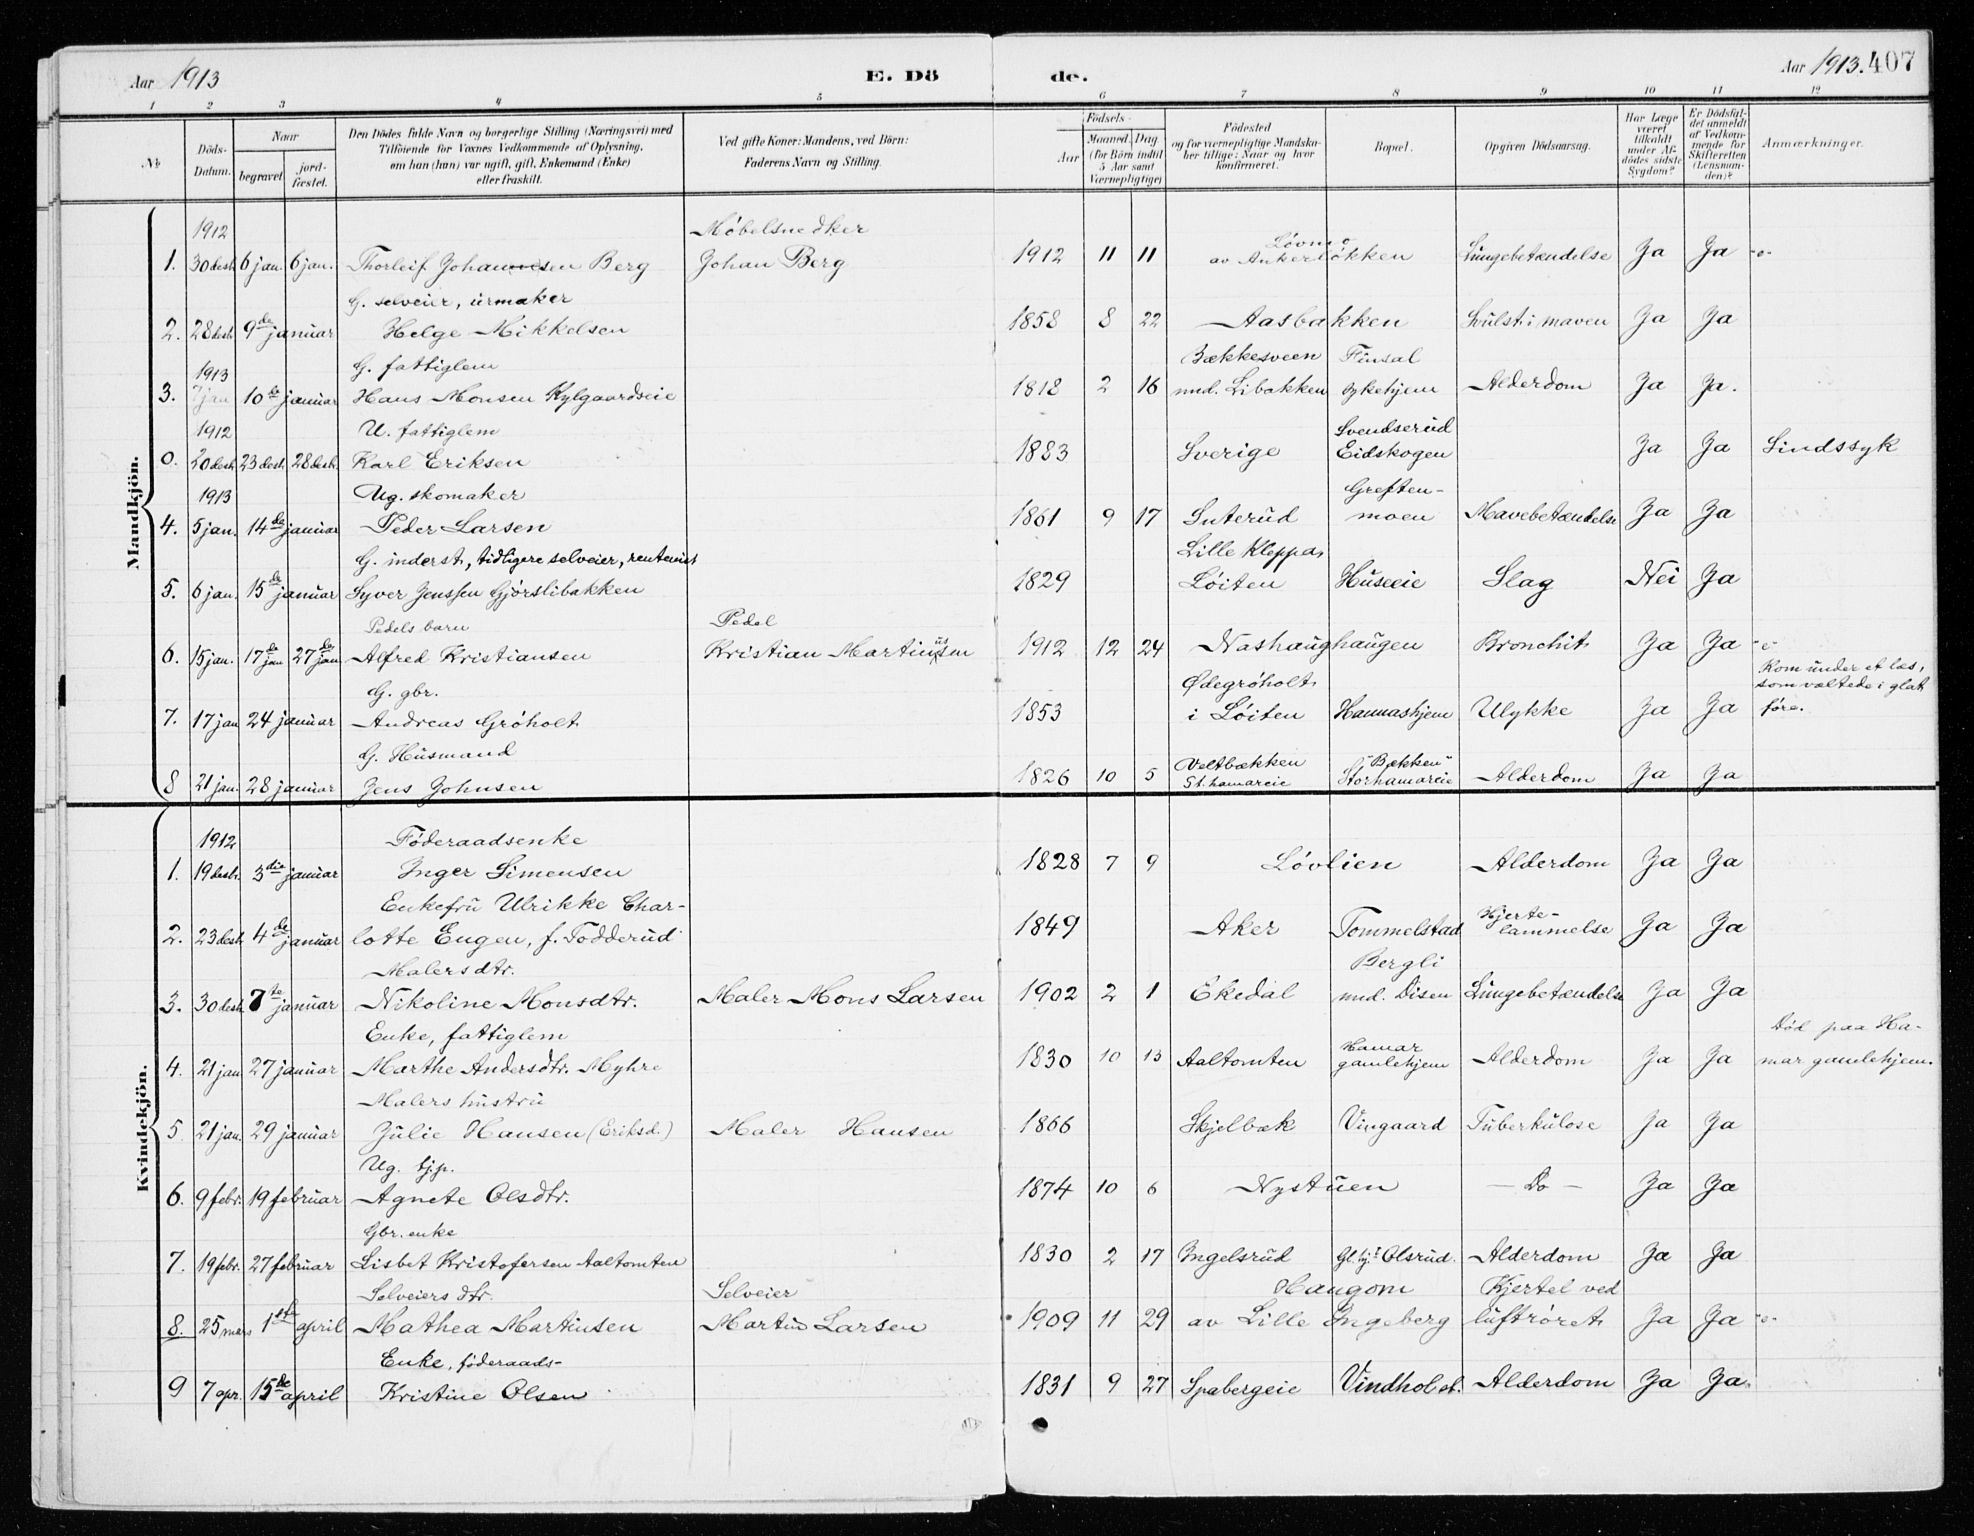 Aar 1913
E. Dö
de.
Aar 1913. 407
1 2 3 4 5 6 7 8 9 10 11 12
№
Döds-Datum.
Naar
begravet
jord-fæstet.
Den Dödes fulde Navn og borgerlige Stilling (Næringsvei) med
Tilföiende for Voxnes Vedkommende af Oplysning,
om han (hun) var ugift, gift, Enkemand (Enke)
eller fraskilt.
Ved gifte Koner: Mandens, ved Börn:
Faderens Navn og Stilling.
Födsels-
Aar
Maaned, Dag
(for Börn indtil
5 Aar samt
Værnepligtige)
Födested
og for værnepligtige Mandska-
ber tillige: Naar og hvor
konfirmeret.
Bopæl.
Opgiven Dödsaarsag.
Har Læge
været
tilkaldt
under Af-
dödes sidste
Sygdom?
Er Dödsfal-
det anmeldt
af Vedkom-
mende for
Skifteretten
(Lensman-
den)?
Anmærkninger.
Mandkjön.
1912 Møbelsnedker Løvmo
1. 30 desb. 6 jan. 6 jan. Thorleif Johannesen Berg Johan Berg 1912 11 11 av Ankerløkken Lungebetændelse Ja Ja -o-
G. selveier, urmaker
2. 28 desb. 9de januar Helge Mikkelsen 1858 8 22 Aasbakken Svulst i maven Ja Ja
1913 G. fattiglem Bækkesveen Finsal
3. 7 jan 10de januar Hans Monsen Kylgaardseie 1818 2 16 und. Libakken sykehjem Alderdom Ja Ja.
1912 U. fattiglem Svendserud
0. 20 desb. 23 desb. 28 desb. Karl Eriksen 1883 Sverige Eidskogen Ja Ja Sindssyk
1913 Ug. skomaker Greften-
4. 5 jan. 14de januar Peder Larsen 1861 9 17 Suterud moen Mavebetændelse Ja Ja
G. inderst, tidligere selveier, rentenist Lille Kleppa,
5. 6 jan. 15de januar Syver Jenssen Gjørslibakken 1829 Løiten Huseeie Slag Nei Ja
Pedels barn Pedel
6. 15 jan. 17de jan 27de jan Alfred Kristiansen Kristian Martinussen 1912 12 24 Nashaughaugen Bronchit Ja Ja -o-
G. gbr. Ødegrøholt, Kom under et læs,
som væltede i glat
7. 17 jan 24 januar Andreas Grøholt 1853 i Løiten Hannashjem Ulykke Ja Ja føre.
G. Husmand Veltbækken "Bækken"
8 21 jan. 28 januar Jens Johnsen 1826 10 5 St. hamareie Storhamareie Alderdom Ja Ja
Kvindekjön.
1912 Føderaadsenke
1. 19 desb. 3die januar Inger Simensen 1828 7 9 Løvlien Alderdom Ja Ja
Enkefru Ulrikke Char- Hjerte-
2. 23 desb. 4de januar lotte Eugen, f. Todderud 1849 Aker Tommelstad lammelse Ja Ja
Malers dtr. Bergli
3. 30 desb. 7de januar Nikoline Monsdtr. Maler Mons Larsen 1902 2 1 Ekedal und. Disen Lungebetændelse Ja Ja
Enke, fattiglem Hamar Død paa Ha-
4. 21 jan 27 januar Marthe Andersdtr. Myhre 1830 10 13 Aaltomten gamlehjem Alderdom Ja Ja mar gamlehjem.
Malers hustru
5 21 jan. 29 januar Julie Hansen (Eriksd.) Maler Hansen 1866 Skjelbæk Vingaard Tuberkulose Ja Ja
Ug. tjp.
6. 9 febr. 19 februar Agnete Olsdtr. 1874 10 6 Nystuen — Do — Ja Ja
Gbr. enke
7. 19 febr. 27 februar Lisbet Kristofersen Aaltomten 1830 2 17 Ingelsrud Gl. hj. Olsrud. Alderdom Ja Ja
Selveiers dtr. Selveier Haugom Kjertel ved
8. 25 mars 1ste april Mathea Martinsen Martin Larsen 1909 11 29 av Lille Ingeberg luftrøret, Ja Ja -o-
Enke, føderaads-
9 7 apr. 15de april Kristine Olsen 1831 9 27 Spabergeie Vindhol st. Alderdom Ja Ja.